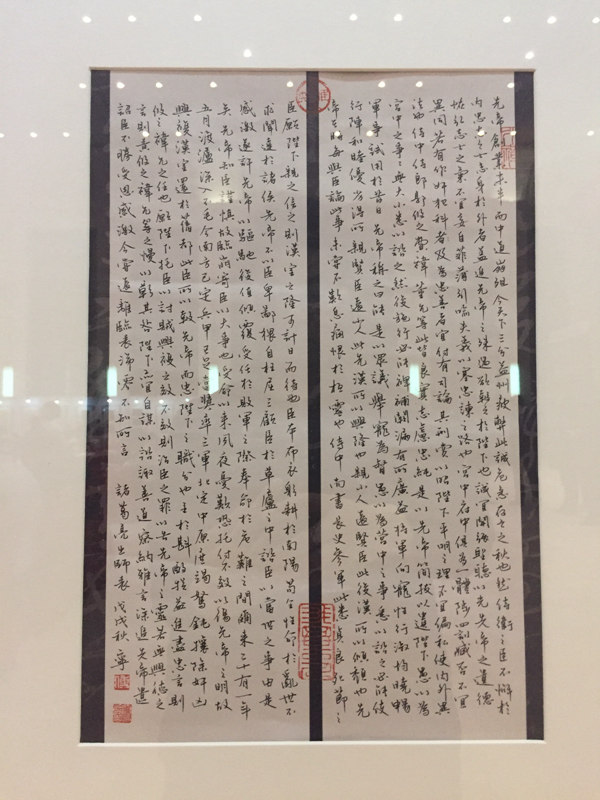 先帝創業未半而中道崩殂今天下三分益州疲弊此誠危急存亡之秋也然侍衛之臣不懈於
內忠志之士忘身於外者蓋追先帝之殊遇欲報之於陛下也誠宜開張聖聽以光先帝之遺德
恢弘志士之氣不宜妄自菲薄引喻失義以塞忠諫之路也宮中府中俱為一體陟罰臧否不宜
異同若有作奸犯科者及為忠善者宜付有司論其刑賞以昭陛下平明之理不宜偏私使內外異
法也侍中侍郎郭攸之費禕董允等此皆良實志慮忠純是以先帝簡拔以遺陛下愚以為
宮中之事事無大小悉以諮之然後施行必能裨補闕漏有所廣益將軍向寵性行淑均曉暢
軍事試用於昔日先帝稱之曰能是以眾議舉寵為督愚以為營中之事悉以諮之必能使
行陣和睦優劣得所親賢臣遠小人此先漢所以興隆也親小人遠賢臣此後漢所以傾頹也先
帝在時每與臣論此事未嘗不歎息痛恨於桓靈也侍中尚書長史參軍此悉貞良死節之
臣願陛下親之信之則漢室之隆可計日而待也臣本布衣躬耕於南陽苟全性命於亂世不
求聞達於諸侯先帝不以臣卑鄙猥自枉屈三顧臣於草廬之中諮臣以當世之事由是
感激遂許先帝以驅馳後值傾覆受任於敗軍之際奉命於危難之間爾來二十有一年
矣先帝知臣謹慎故臨崩寄臣以大事也受命以來夙夜憂歎恐托付不效以傷先帝之明故
五月渡瀘深入不毛今南方已定兵甲已足當獎率三軍北定中原庶竭駑鈍攘除奸凶
興復漢室還於舊都此臣所以報先帝而忠陛下之職分也至於斟酌損益進盡忠言則
攸之禕允之任也願陛下托臣以討賊興復之效不效則治臣之罪以告先帝之靈若無興德之
言則責攸之禕允等之慢以彰其咎陛下亦宜自謀以諮諏善道察納雅言深追先帝遺
詔臣不勝受恩感激今當遠離臨表涕零不知所言 諸葛亮出師表 戊戌秋 寧